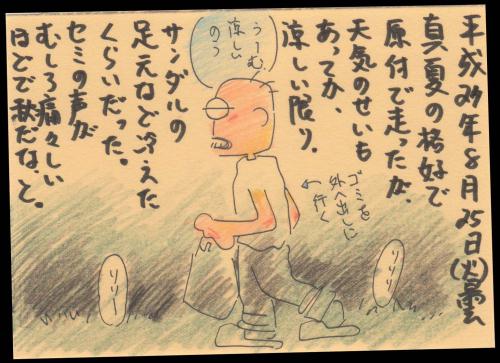 平成27年8月25日(火)曇
真夏の格好で
原付で走ったが、
天気のせいも
あってか、
涼しい限り。
サンダルの
足元など冷えた
くらいだった。
セミの声が
むしろ痛々しい
ほどで秋だな、と。
うーむ
涼しい
のう
ゴミを
外へ出しに
←行く
リリリ
リリー